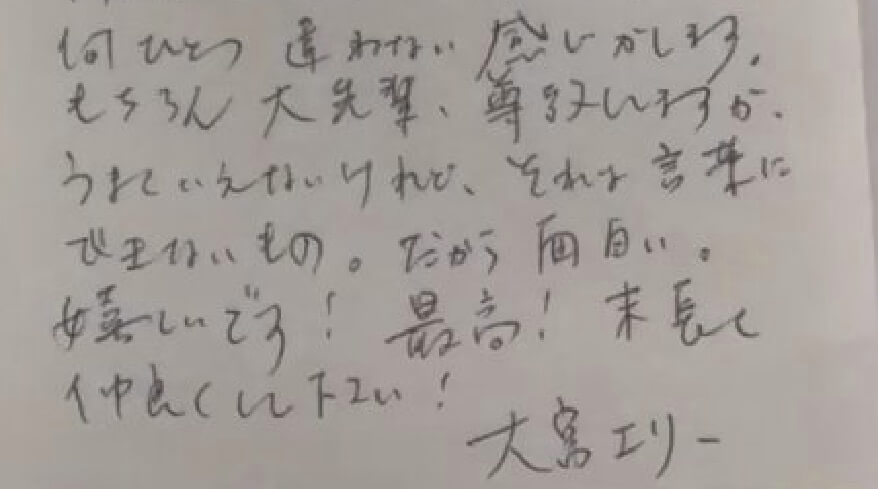 何ひとつ違わない感じがします。
もちろん大先輩、尊敬していますが、
うまくいえないけれど、それは言葉に
できないもの。だから面白い。
嬉しいです!最高!末長く
仲良くして下さい!
大宮エリー